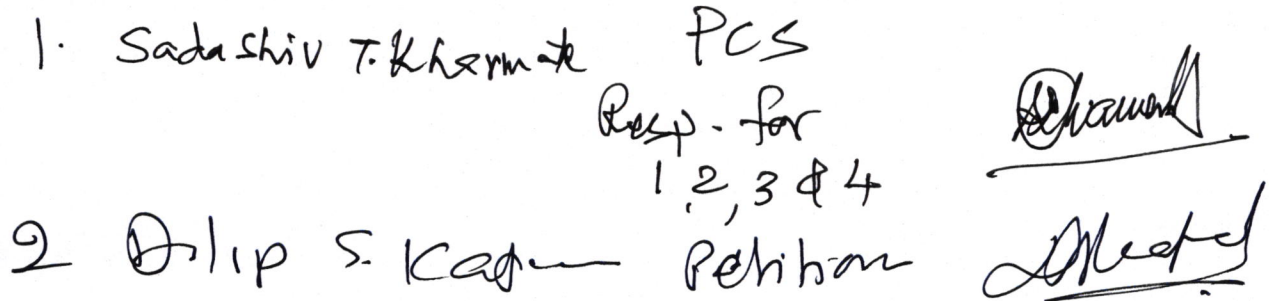 1. Sadashiv T. Kharmate PCS
Resp. for
1, 2, 3 & 4
2 Dilip S. Petition